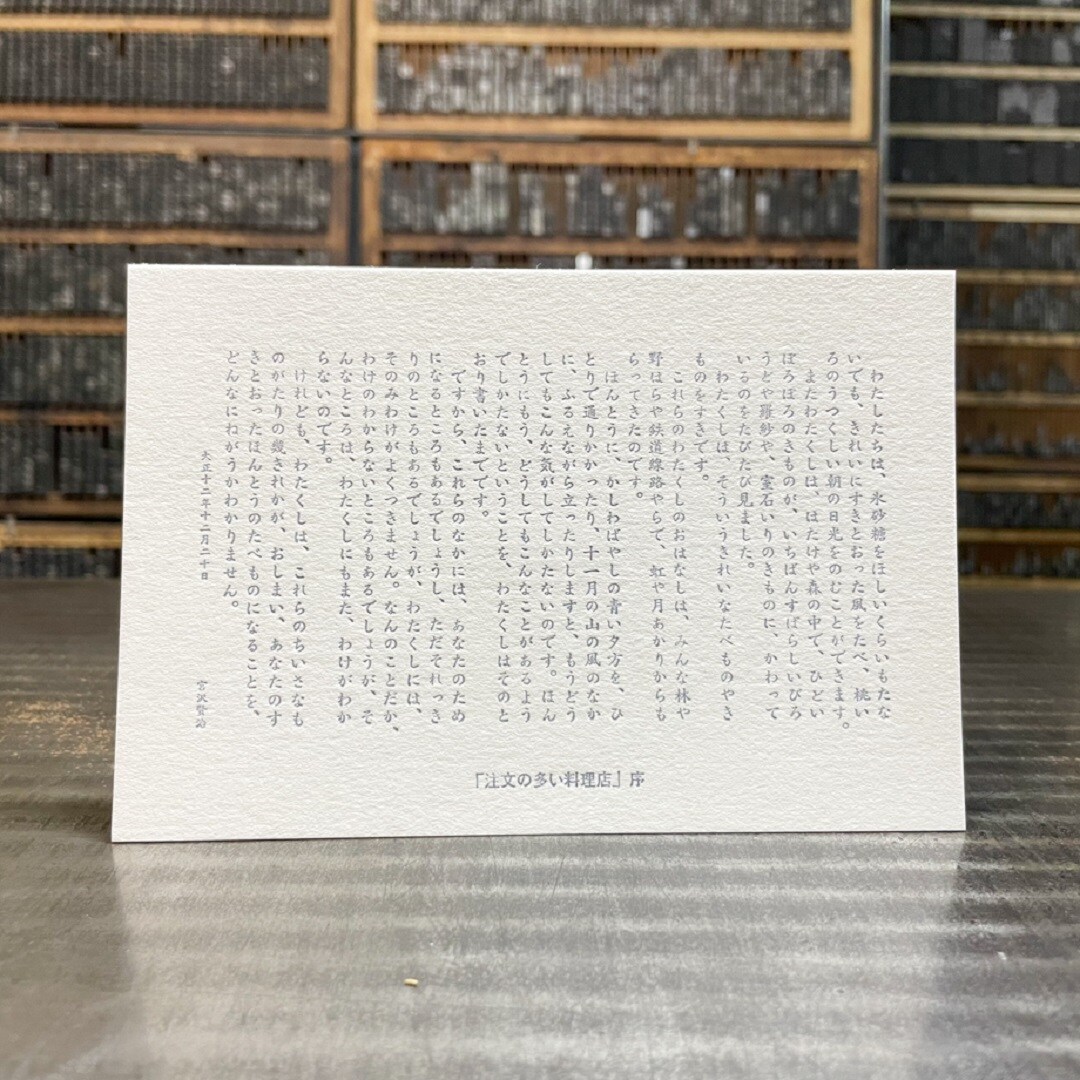 わたしたちは、氷砂糖をほしいくらいもたな
いでも、きれいにすきとおった風をたべ、桃い
ろのうつくしい朝の日光をのむことができます。
またわたくしは、はたけや森の中で、ひどい
ぼろぼろのきものが、いちばんすばらしいびろ
うどや羅紗や、宝石いりのきものに、かわって
いるのをたびたび見ました。
わたくしは、そういうきれいなたべものやき
ものをすきです。
これらのわたくしのおはなしは、みんな林や
野はらや鉄道線路やらで、虹や月あかりからも
らってきたのです。
ほんとうに、かしわばやしの青い夕方を、ひ
とりで通りかかったり、十一月の山の風のなか
に、ふるえながら立ったりしますと、もうどう
してもこんな気がしてしかたないのです。ほん
とうにもう、どうしてもこんなことがあるよう
でしかたないということを、わたくしはそのと
おり書いたまでです。
ですから、これらのなかには、あなたのため
になるところもあるでしょうし、ただそれっき
りのところもあるでしょうが、わたくしには、
そのみわけがよくつきません。なんのことだか、
わけのわからないところもあるでしょうが、そ
んなところは、わたくしにもまた、わけがわか
らないのです。
けれども、わたくしは、これらのちいさなも
のがたりの幾きれかが、おしまい、あなたのす
きとおったほんとうのたべものになることを、
どんなにねがうかわかりません。
大正十二年十二月二十日
宮沢賢治
『注文の多い料理店』序